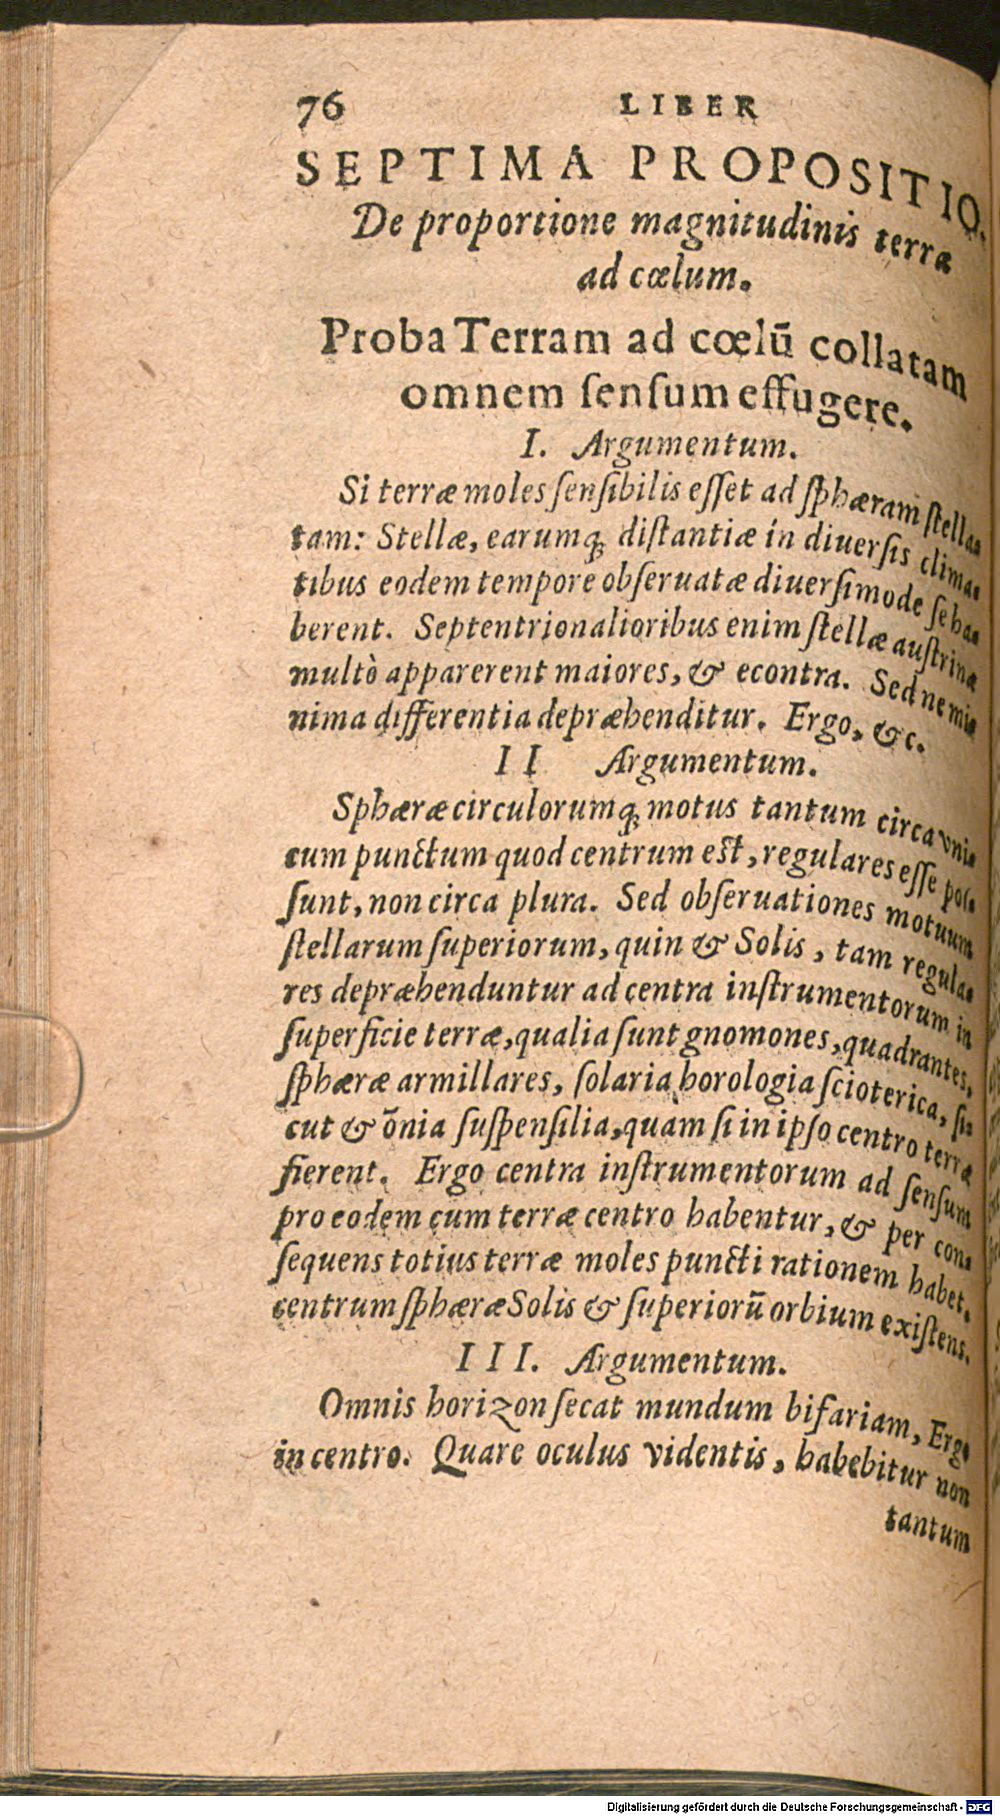 76 LIBER
SEPTIMA PROPOSITIO.
De proportione magnitudinis terræ
ad cœlum.
Proba Terram ad cœlū collatam
omnem ſenſum effugere.
I. Argumentum.
Si terræ moles ſenſibilis eſſet ad ſphæram ſtella-
tam: Stellæ, earumq́; diſtantiæ in diuerſis clima-
tibus eodem tempore obſeruatæ diuerſimode ſe ha-
berent. Septentrionalioribus enim ſtellæ auſtrinæ
multò apparerent maiores, & econtra. Sed ne mi-
nima differentia depræhenditur. Ergo, &c.
II Argumentum.
Sphæræ circulorumq́; motus tantum circa vni-
cum punctum quod centrum est, regulares eſſe poſ-
ſunt, non circa plura. Sed obſeruationes motuum
ſtellarum ſuperiorum, quin & Solis, tam regula-
res depræhenduntur ad centra inſtrumentorum in
ſuperficie terræ, qualia ſunt gnomones, quadrantes,
ſphæræ armillares, ſolaria horologia ſcioterica, ſi-
cut & ōnia ſuſpenſilia, quam ſi in ipſo centro terræ
fierent. Ergo centra inſtrumentorum ad ſenſum
pro eodem cum terræ centro habentur, & per con-
ſequens totius terræ moles puncti rationem habet,
centrum ſphæræ Solis & ſuperiorū orbium exiſtens.
III. Argumentum.
Omnis horizon ſecat mundum bifariam, Ergo
in centro. Quare oculus videntis, habebitur non
tantum
Digitalisierung gefördert durch die Deutsche Forschungsgemeinschaft - DFG